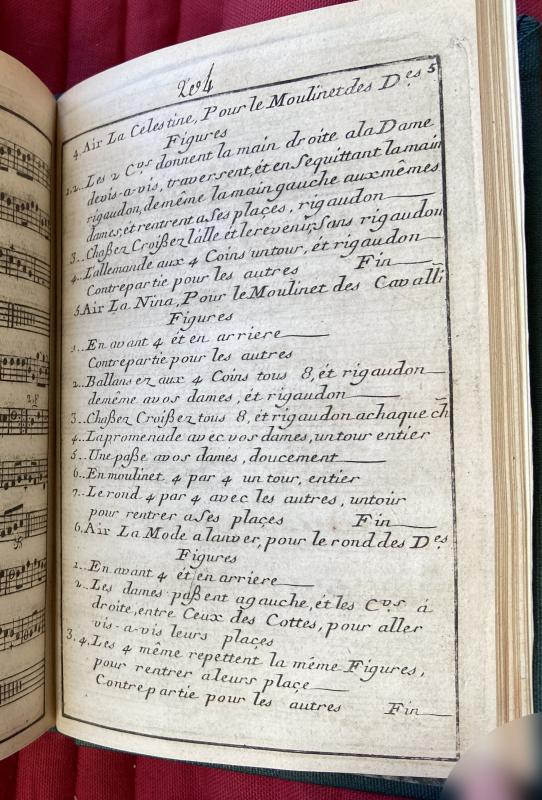 204
5
4. Air La Célestine, Pour le Moulinet des D.es
Figures
1.2.. Les 2 C.vrs donnent la main droite a la Dame
devis-a-vis, traversent, ét en Sequittant la main
rigaudon, demême la main gauche aux mêmes
dames, ét rentrent a Ses plaçes, rigaudon
3.. Chaßez Croißez l'alle ét lerevenir, Sans rigaudon
4.. L'allemande aux 4 Coins untour, ét rigaudon
Contrepartie pour les autres Fin
5. Air La Nina, Pour le Moulinet des Cavalli
Figures
1.. En avant 4 ét en arriere
Contrepartie pour les autres
2.. Ballansez aux 4 Coins tous 8, ét rigaudon
demême avos dames, ét rigaudon
3.. Chaßez Croißez tous 8, ét rigaudon achaque ch
4.. La promenade avec vos dames, un tour entier
5.. Une paße avos dames, doucement
6.. En moulinet 4 par 4 un tour, entier
7.. Le rond 4 par 4 avec les autres, untour
pour rentrer a Ses plaçes Fin
6. Air La Mode alanver, pour le rond des D.es
Figures
1.. En avant 4 ét en arriere
2.. Les dames paßent agauche, ét les C.vrs á
droite, entre Ceux des Cottes, pour aller
vis-a-vis leurs plaçes
3.4. Les 4 même repettent la méme Figures,
pour rentrer aleurs plaçe
Contrepartie pour les autres Fin